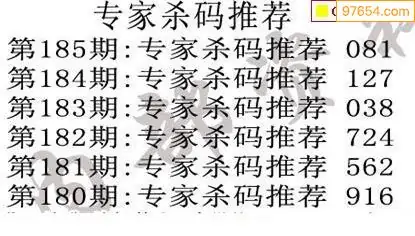 专家杀码推荐
97654.com
第185期:专家杀码推荐 081
第184期:专家杀码推荐 127
第183期:专家杀码推荐 038
第182期:专家杀码推荐 724
第181期:专家杀码推荐 562
第180期:专家杀码推荐 916